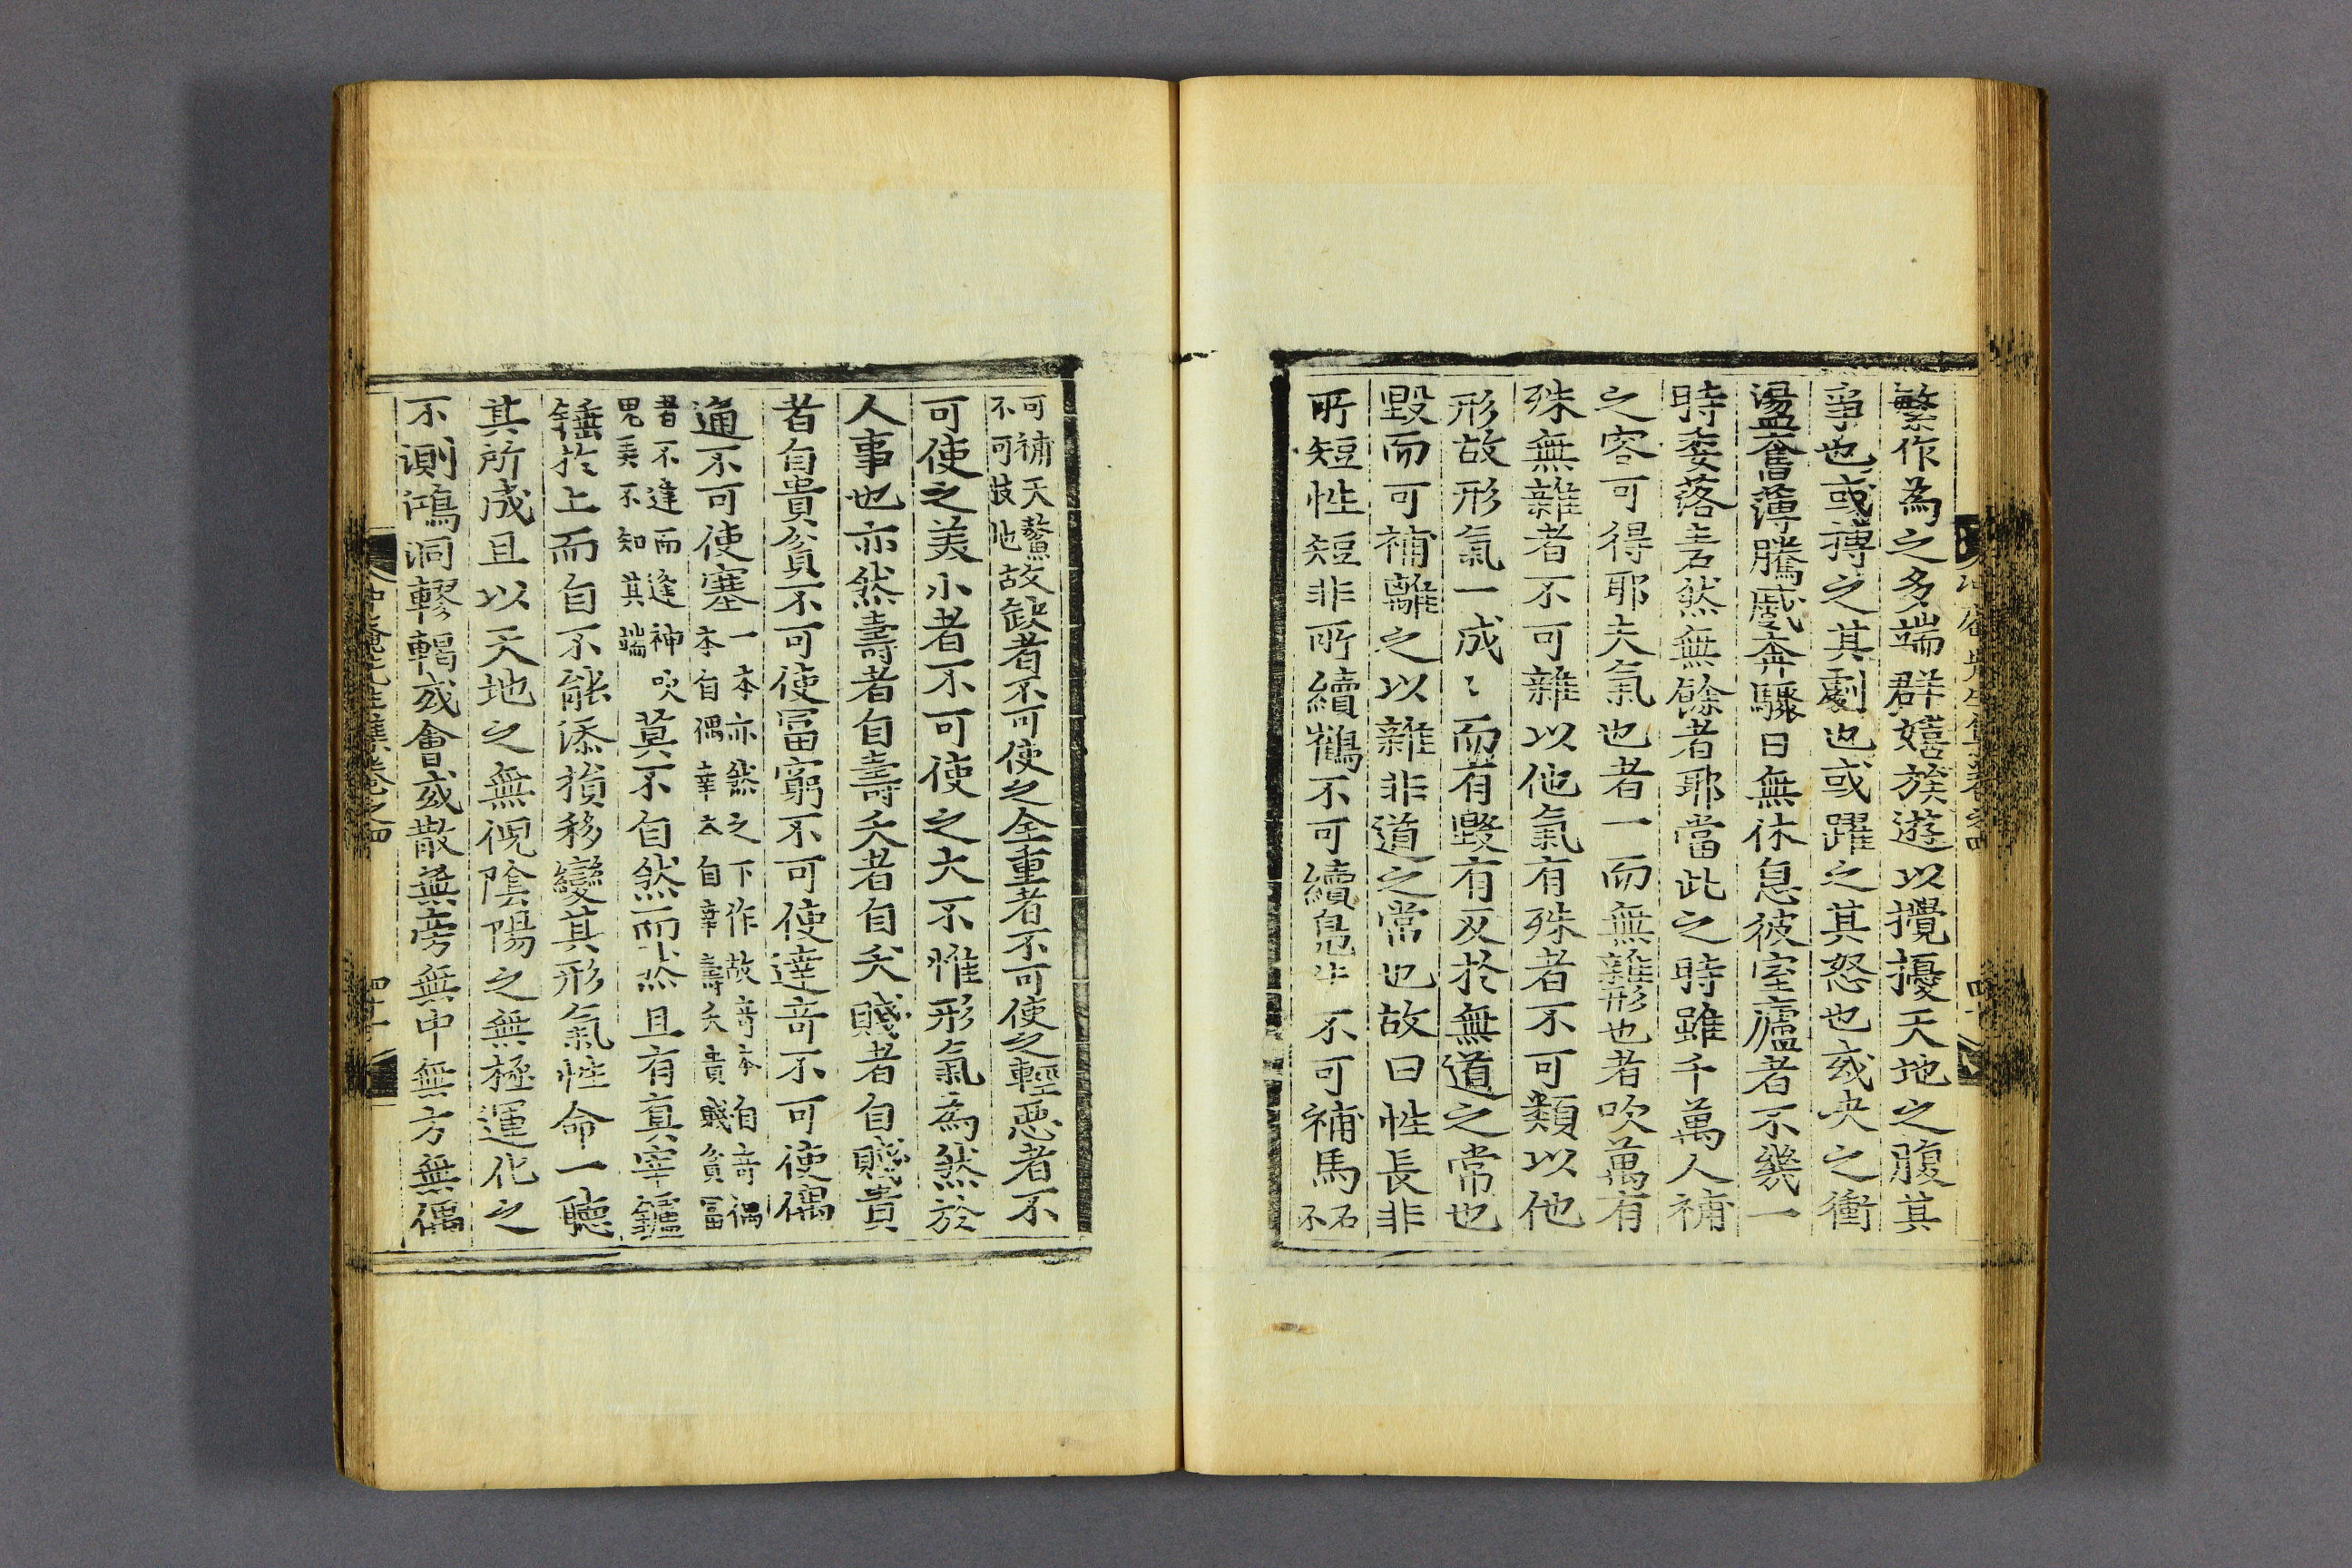 繁作爲之多端群嬉族遊以攪擾天地之腹其
爭也或搏之其劇也或躍之其怒也或决之衝
盪奮薄騰蹙奔驟日無休息彼室廬者不幾一
時委落砉然無餘者耶當此之時雖千萬人補
之容可得耶夫氣也者一而無雜形也者吹萬有
殊無雜者不可雜以他氣有殊者不可類以他
形故形氣一成〻而有毀有反於無道之常也
毀而可補離之以雜非道之常也故曰性長非
所短性短非所續鶴不可續鳧牛不可補馬石不
可補天鰲
不可肢地故缺者不可使之全重者不可使之輕惡者不
可使之美小者不可使之大不惟形氣爲然於
人事也亦然壽者自壽夭者自夭賤者自賤貴
者自貴貧不可使冨窮不可使達竒不可使偶
通不可使塞一本亦然之下作故竒本自竒偶
本自偶幸本自幸壽夭貴賤貧冨
者不逢而逢神
鬼羙不知其端吹莫不自然而然且有眞宰鑪
錘於上而自不能添損移變其形氣性命一聽
其所成且以天地之無倪陰陽之無極運化之
不測鴻洞轇轕或會或散無旁無中無方無偶
冲庵先生集卷之四
冲庵先生集卷之四
四十一